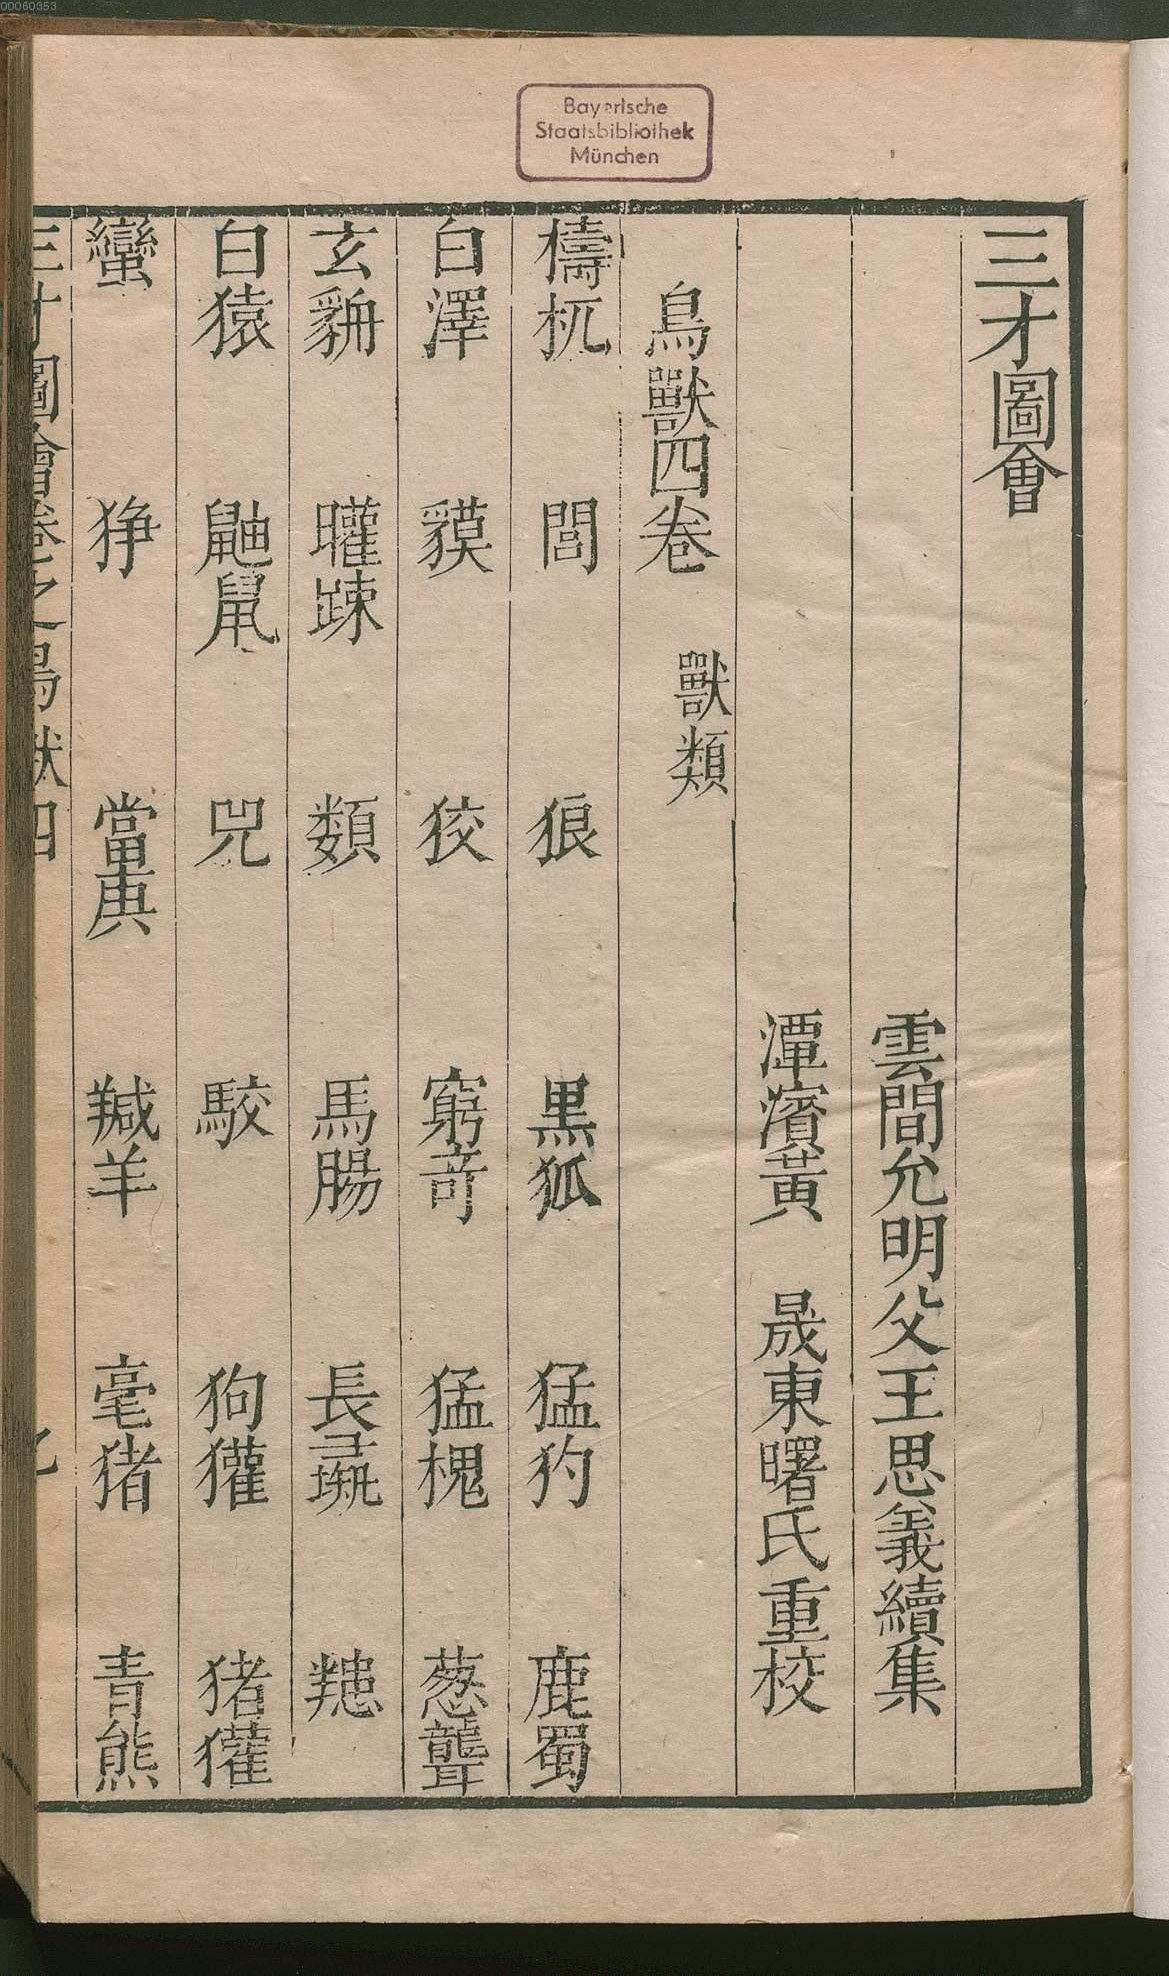 00060353
Bayerische
Staatsbibliothek
München
三才圖會
雲間允明父王思義續集
潭濱黃 晟東曙氏重校
鳥獸四卷 獸類
檮杌 閭 狼 黑狐 猛豹 鹿蜀
白澤 貘 狡 窮奇 猛槐 葱聾
玄貈 矔疎 類 馬腸 長彘 羬
白猿 鼬鼠 兕 駮 狗獾 猪獾
蠻 猙 當庚 羬羊 毫猪 青熊
三才圖會卷之鳥獸四